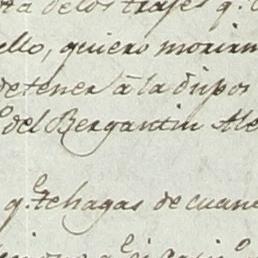 ta de los trajes q.
ello, quiero morirm
detener à la dispos
del Bergantin Ale
q.e tehagas de cuan